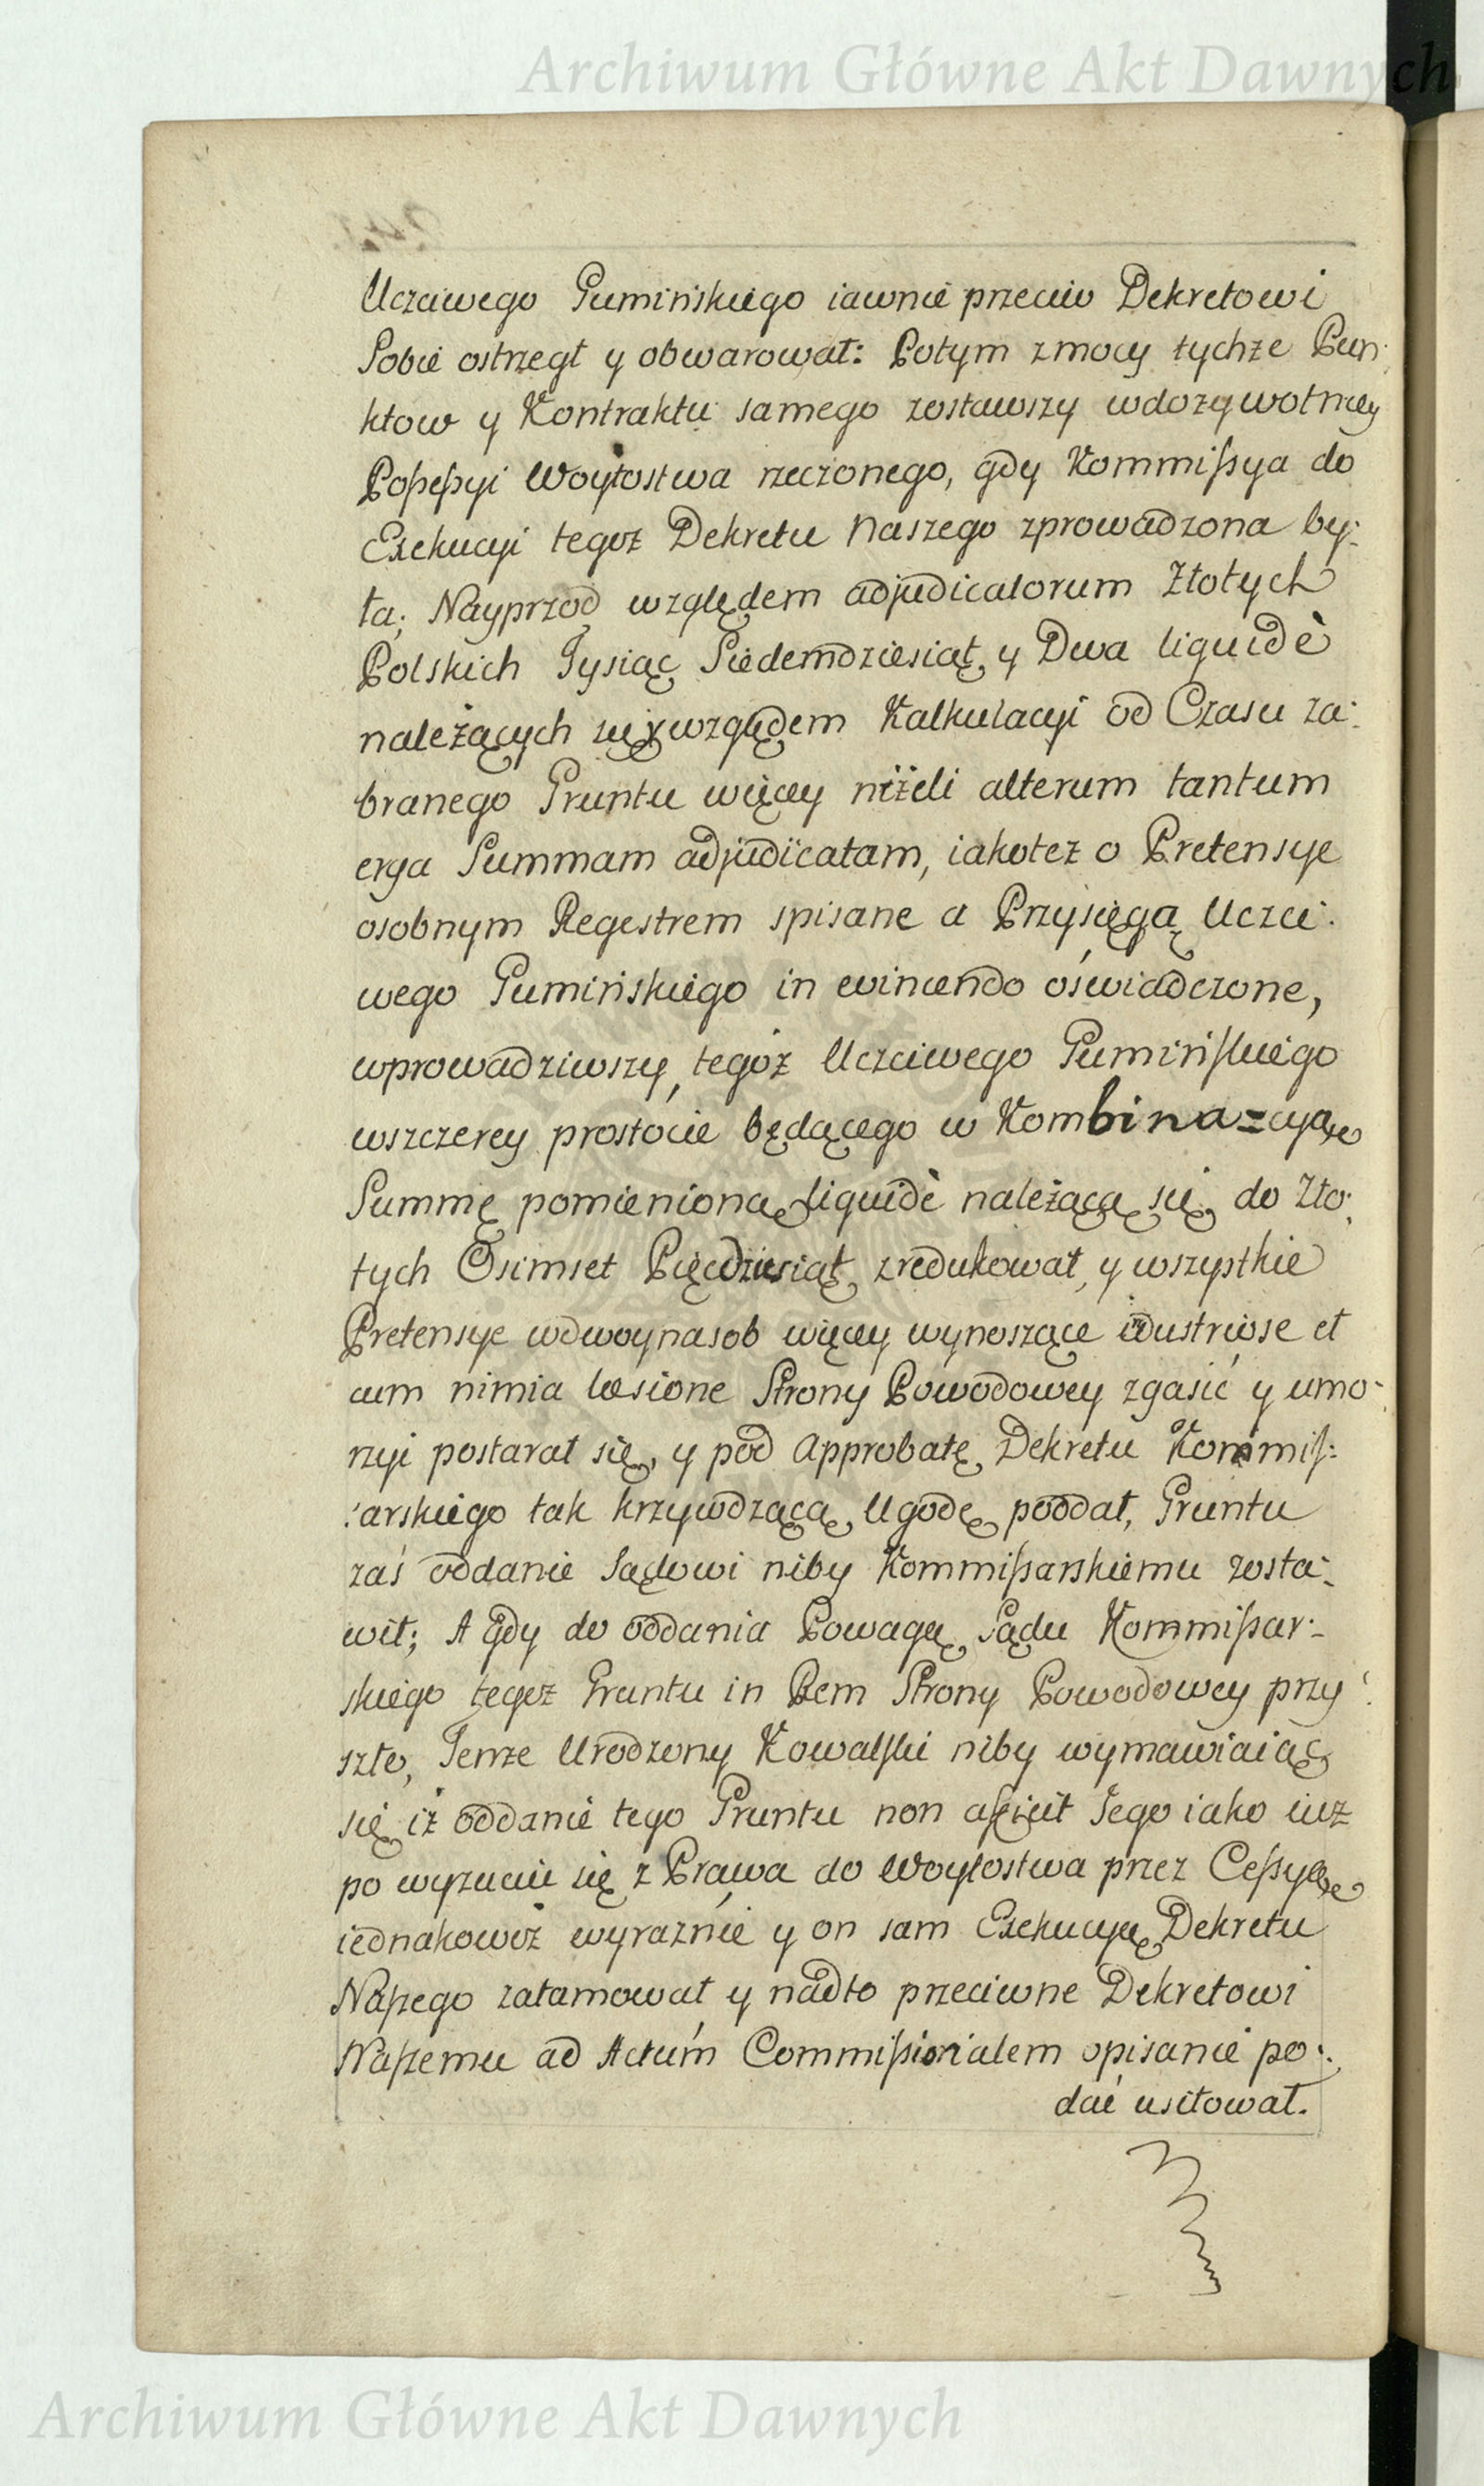 Archiwum Główne Akt Dawnych
Uczciwego Gumińskiego iawnie przeciw Dekretowi
Sobie ostrzegł y obwarował: Potym zmocy tychże Pun:
ktow y Kontraktu samego zostawszy wdożywotniey
Poßeßyi Woytostwa rzeczonego, gdy Kommißya do
Exekucyi tegoż Dekretu Naszego zprowadzona by:
ła; Nayprzod względem adjudicatorum Złotych
Polskich Tysiąc Siedemdziesiąt y Dwa liquidè
należących się y względem Kalkulacyi od Czasu za:
branego Gruntu więcey niżeli alterum tantum
erga Summam adjudicatam, iakoteż o Pretensye
osobnym Regestrem spisane a Przysięgą Uczci:
wego Gumińskiego in evincendo oświadczone,
wprowadziwszy, tegoż Uczciwego Gumińskiego
wszczerey prostocie będącego w Kombina=cyą
Summę pomienioną liquidè należącą się do Zło:
tych Osimset Pięcdziesiąt zredukował, y wszystkie
Pretensye wdwoynasob więcey wynoszące industriose et
cum nimia læsione Strony Powodowey zgasić y umo:
rzyi postarał się, y pod Approbatę Dekretu Kommiß:
:arskiego tak krzywdzącą Ugodę poddał, Gruntu
zaś oddanie Sądowi niby Kommißarskiemu zosta:
wił; A gdy do oddania Powagą Sądu Kommißar:
skiego tegoż Gruntu in Rem Strony Powodowey przy:
szło, Tenże Urodzony Kowalski niby wymawiaiąc
się iż oddanie tego Gruntu non afficit Jego iako iuż
po wyzuciu się z Prawa do Woytostwa przez Ceßyą
iednakowoż wyraźnie y on sam Exekucyę Dekretu
Naßego zatamował y nadto przeciwne Dekretowi
Naßemu ad Actum Commißionalem opisanie po:
dać usiłował.
Archiwum Główne Akt Dawnych